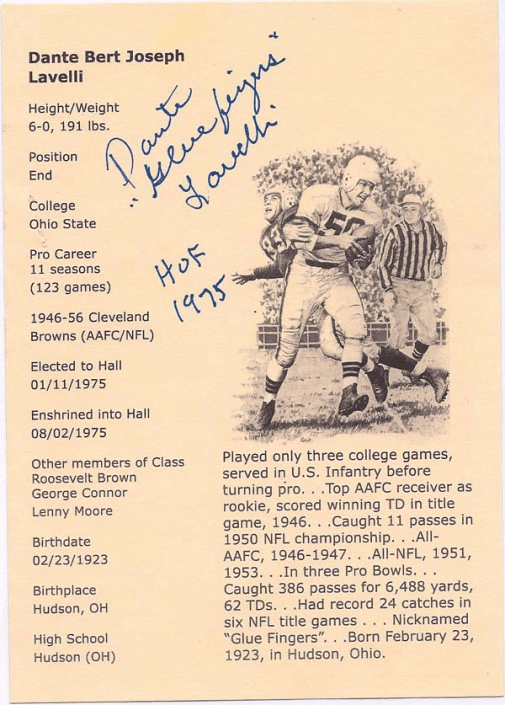 Dante Bert Joseph
Lavelli
Height/Weight
6-0, 191 lbs.
Position
End
College
Ohio State
Pro Career
11 seasons
(123 games)
1946-56 Cleveland
Browns (AAFC/NFL)
Elected to Hall
01/11/1975
Enshrined into Hall
08/02/1975
Other members of Class
Roosevelt Brown
George Connor
Lenny Moore
Birthdate
02/23/1923
Birthplace
Hudson, OH
High School
Hudson (OH)
Dante
"Glue fingers"
Lavelli
HOF
1975
56
Played only three college games,
served in U.S. Infantry before
turning pro. . .Top AAFC receiver as
rookie, scored winning TD in title
game, 1946. . .Caught 11 passes in
1950 NFL championship. . .All-
AAFC, 1946-1947. . .All-NFL, 1951,
1953. . .In three Pro Bowls. . .
Caught 386 passes for 6,488 yards,
62 TDs. . .Had record 24 catches in
six NFL title games . . . Nicknamed
"Glue Fingers". . .Born February 23,
1923, in Hudson, Ohio.